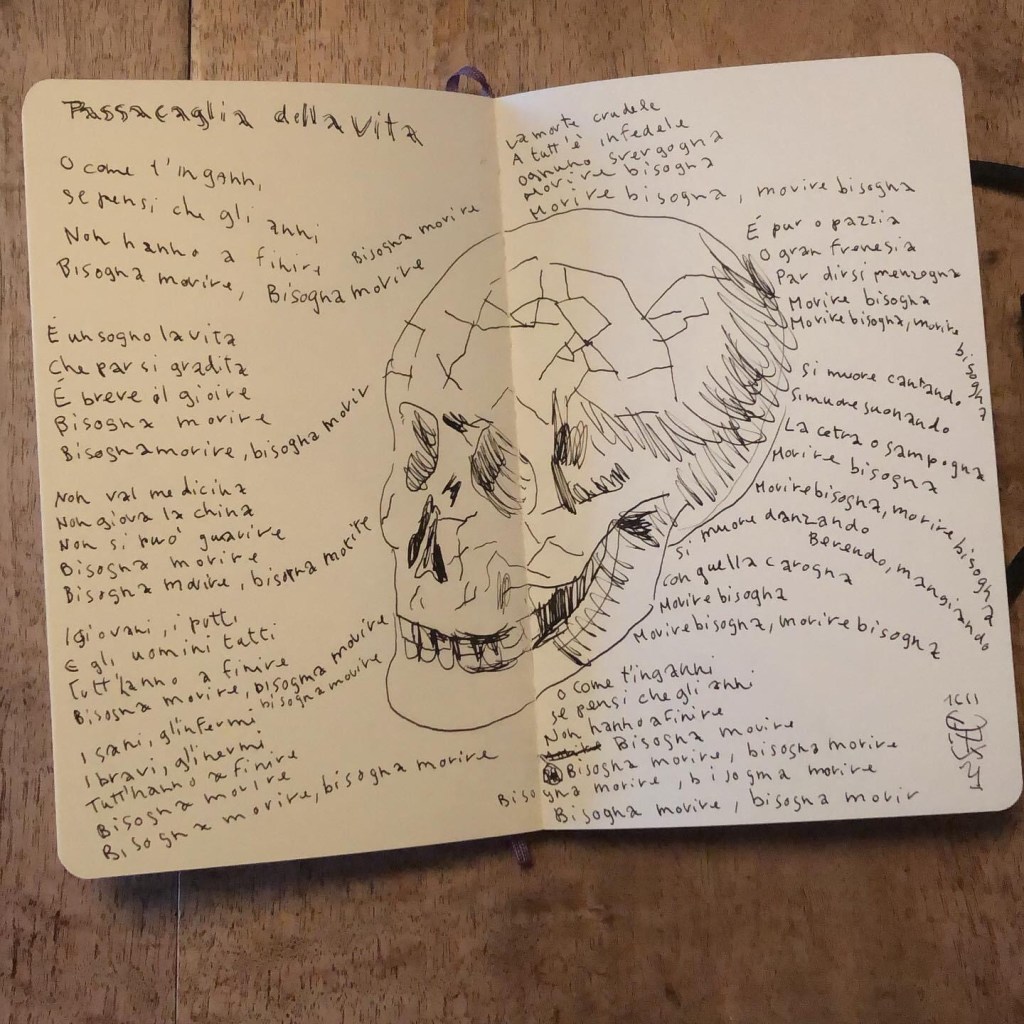 Passacaglia della Vita
O come t'inganni,
se pensi che gli anni
Non hanno a finire, Bisogna morire
Bisogna morire, Bisogna morire
È un sogno la vita
Che par si gradita
È breve il gioire
Bisogna morire
Bisogna morire, bisogna morir
Non val medicina
Non giova la china
Non si può guarire
Bisogna morire
Bisogna morire, bisogna morire
I giovani, i putti
E gli uomini tutti
Tutt'hanno a finire
Bisogna morire, bisogma morire
bisogna morire
I sani, gl'infermi
I bravi, gl'inermi
Tutt'hanno a finire
Bisogna morire
Bisogna morire, bisogna morire
La morte crudele
A tutt'è infedele
Ognuno svergogna
Morire bisogna
Morire bisogna, morire bisogna
È pur o pazzia
O gran frenesia
Par dirsi menzogna
Morire bisogna
Morire bisogna, morire bisogna
Si muore cantando
Si muore suonando
La cetra o sampogna
Morire bisogna
Morire bisogna, morire bisogna
Si muore danzando
Berendo, mangiando
Con quella carogna
Morire bisogna
Morire bisogna, morire bisogna
O come t'inganni
se pensi che gli anni
Non hanno a finire
Bisogna morire
Bisogna morire, bisogna morire
Bisogna morire, bisogma morire
Bisogna morire, bisogna morir